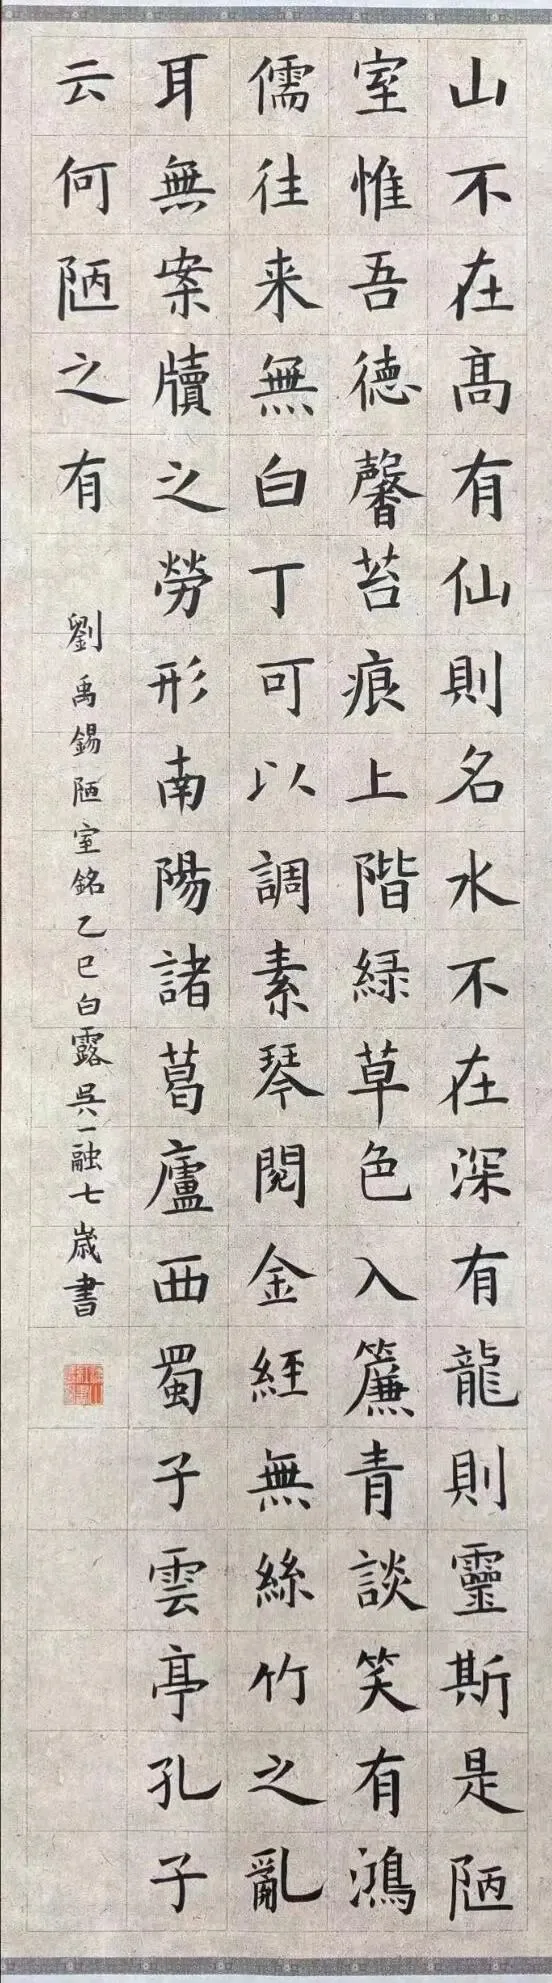 山不在高有仙則名水不在深有龍則靈斯是陋
室惟吾德馨苔痕上階緑草色入簾青談笑有鴻
儒往来無白丁可以調素琴閲金經無絲竹之亂
耳無案牘之勞形南陽諸葛廬西蜀子雲亭孔子
云何陋之有
劉禹錫陋室銘乙巳白露吳一融七歲書